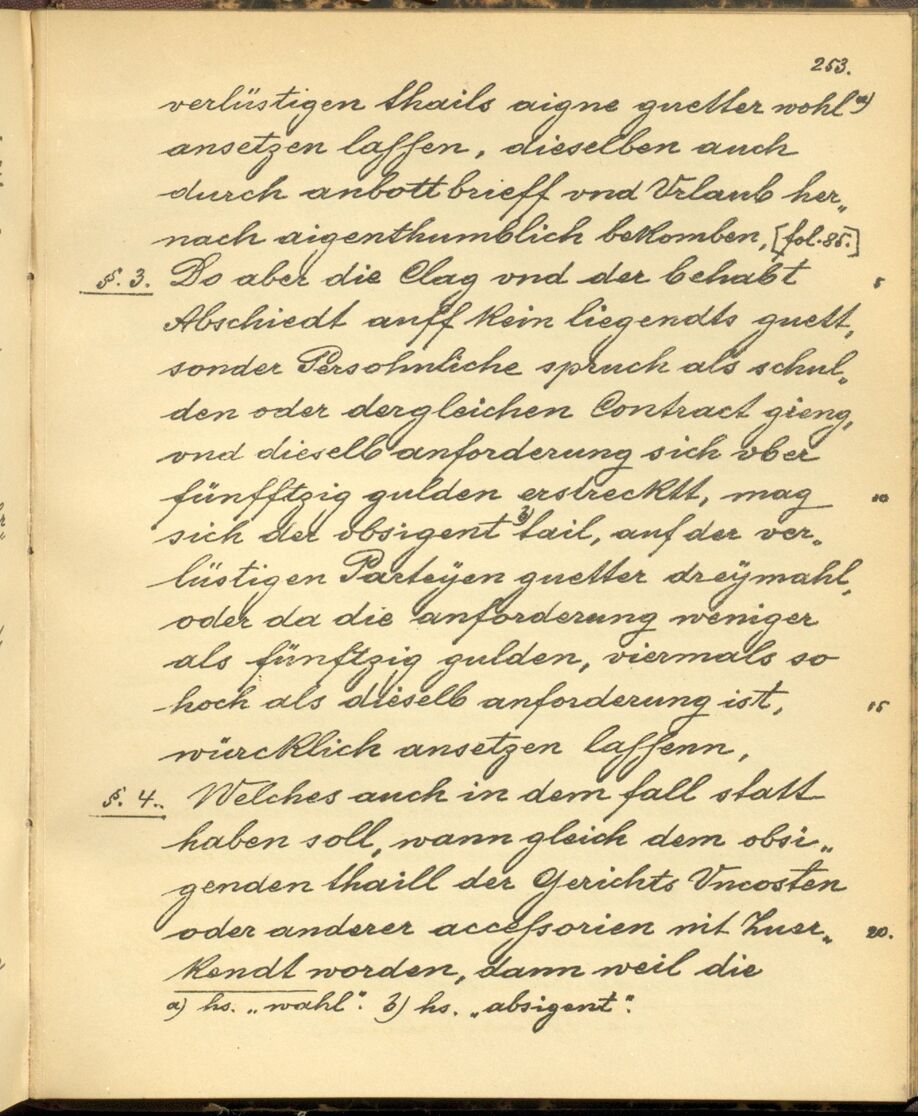 253.
verlüstigen thails aigne guetter wohl a)
ansetzen lassen, dieselben auch
durch anbottbrieff vnd Vrlaub her„
nach aigenthumblich bekomben, [fol. 85.]
§. 3. Do aber die Clag vnd der behabt 5
Abschiedt auff kein liegendts guett,
sonder Persohnliche spruch als schul„
den oder dergleichen Contract gieng,
vnd dieselb anforderung sich vber
fünfftzig gulden erstrecktt, mag 10
sich der obsigent b) tail, auf der ver„
lüstigen Parteyen guetter dreymahl,
oder da die anforderung weniger
als fünftzig gulden, viermals so
hoch als dieselb anforderung ist, 15
würcklich ansetzen lassenn,
§. 4. Welches auch in dem fall statt
haben soll, wann gleich dem obsi„
genden thaill der Gerichts Vncosten
oder anderer accessorien nit Zuer„ 20.
kendt worden, dann weil die
a) hs. „wahl“. b) hs. „absigent“.